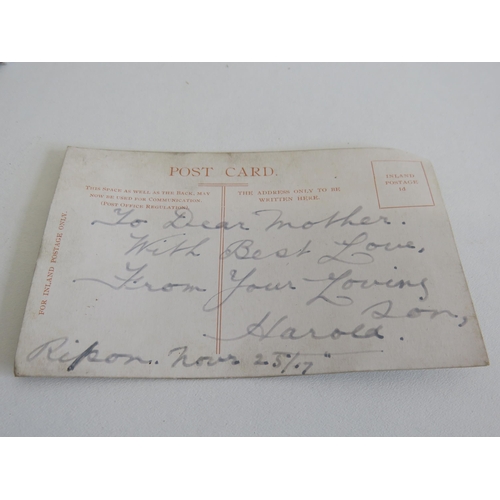 POST CARD.
THIS SPACE AS WELL AS THE BACK, MAY
NOW BE USED FOR COMMUNICATION.
(POST OFFICE REGULATION).
THE ADDRESS ONLY TO BE
WRITTEN HERE.
INLAND
POSTAGE
FOR INLAND POSTAGE ONLY.
To Dear Mother.
With Best Love,
From Your Loving
Son,
Harold.
Ripon. Novr 25/17